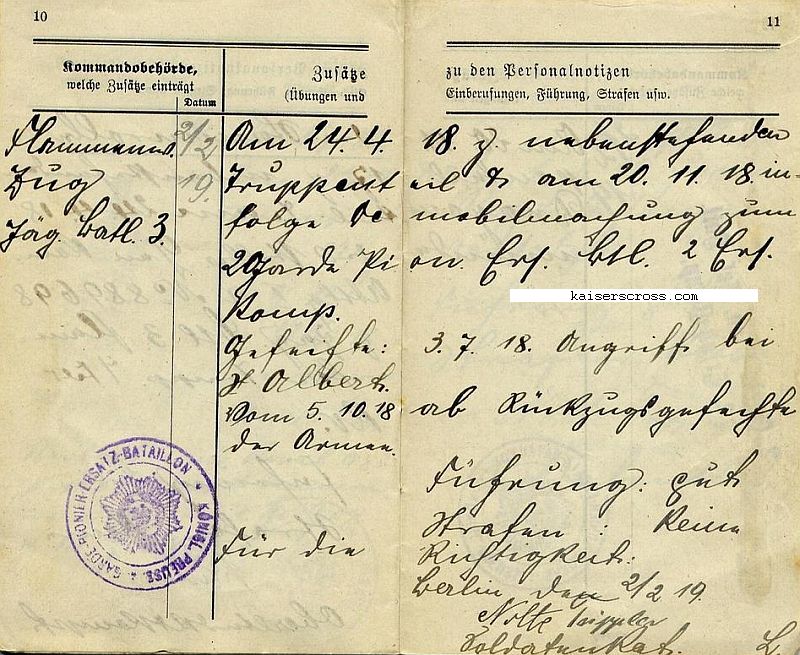 10
11
Kommandobehörde,
welche Zusätze einträgt
Datum
Zusätze
(Übungen und
zu den Personalnotizen
Einberufungen, Führung, Strafen usw.
Flammenw.
Zug
Jäg. Batl. 3.
2/2
19.
Am 24. 4. 18. z. nebenstehenden
Truppenteil & am 20. 11. 18. in-
folge De mobilmachung zum
2 Garde Pion. Ers. Btl. 2 Ers.
Komp.
kaiserscross.com
Gefechte: 3. 7. 18. Angriff bei
St Albert.
Vom 5. 10. 18 ab Rückzugsgefechte
der Armee.
Führung: gut
Strafen: Keine
Für die Richtigkeit:
Berlin, den 2/2 19.
Nolte
Soldatenrat. L.
GARDE-PIONIER-ERSATZ-BATAILLON * KÖNIGL. PREUSS. *